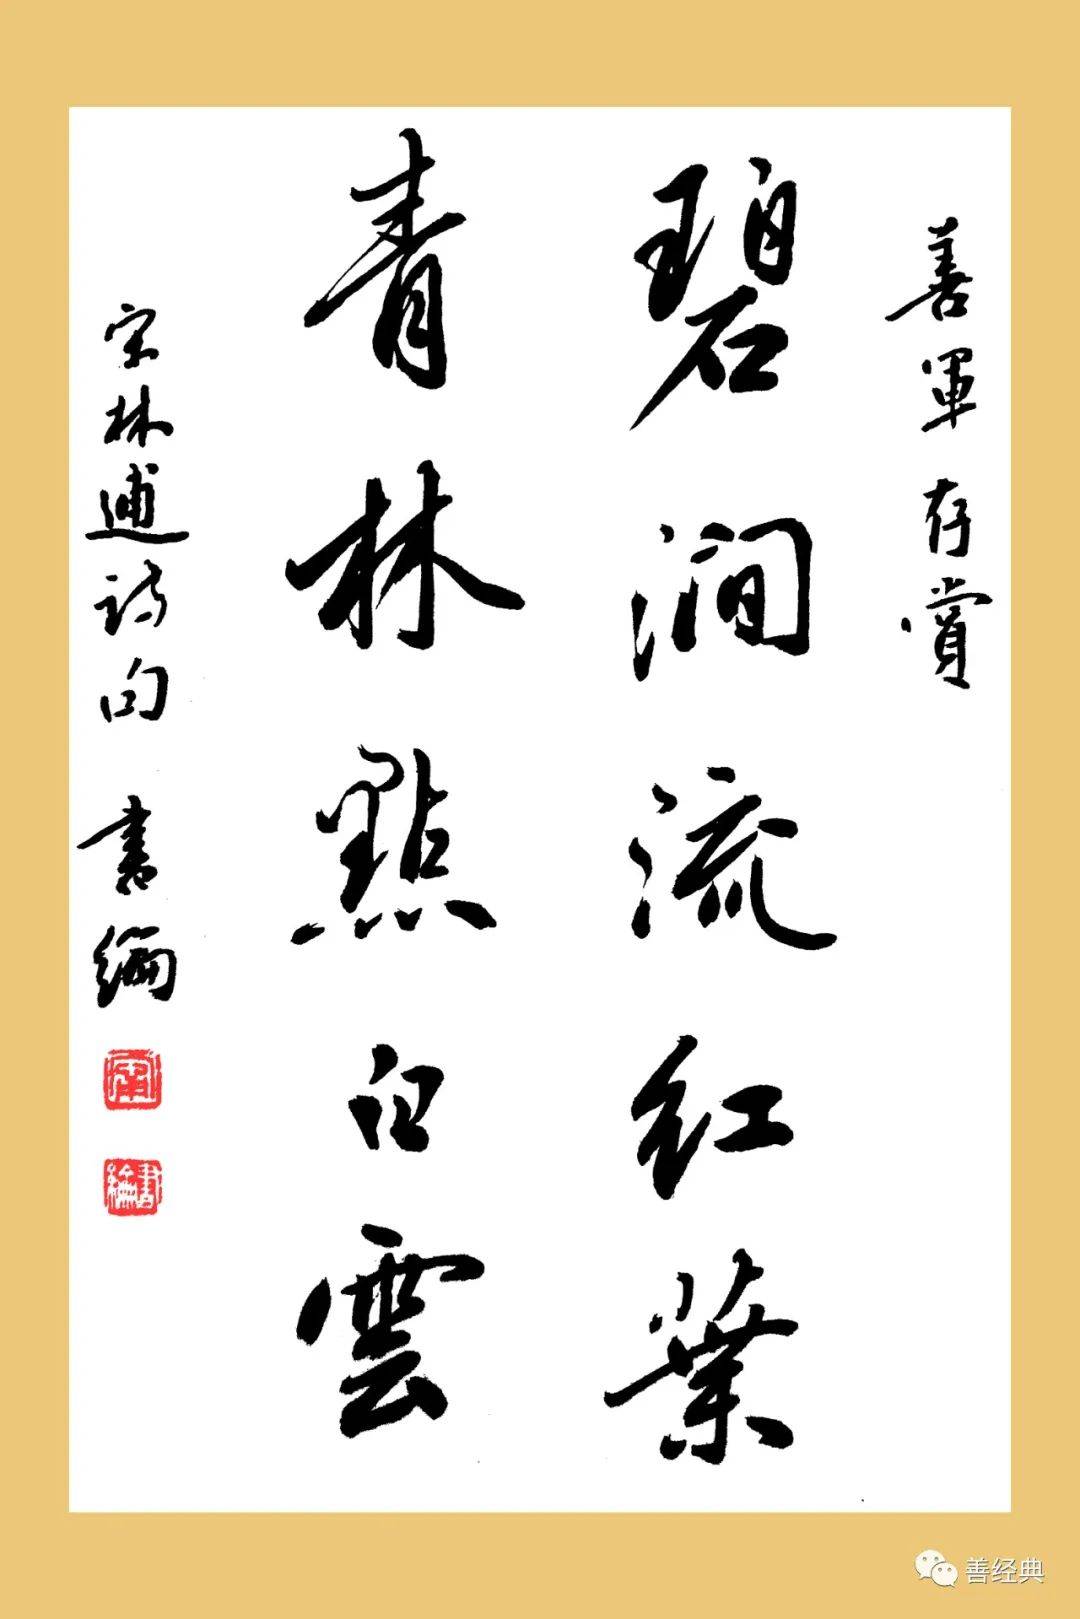 善軍存賞
碧澗流紅葉
青林點白雲
宋林逋詩句 書綸
甯
書綸
善经典